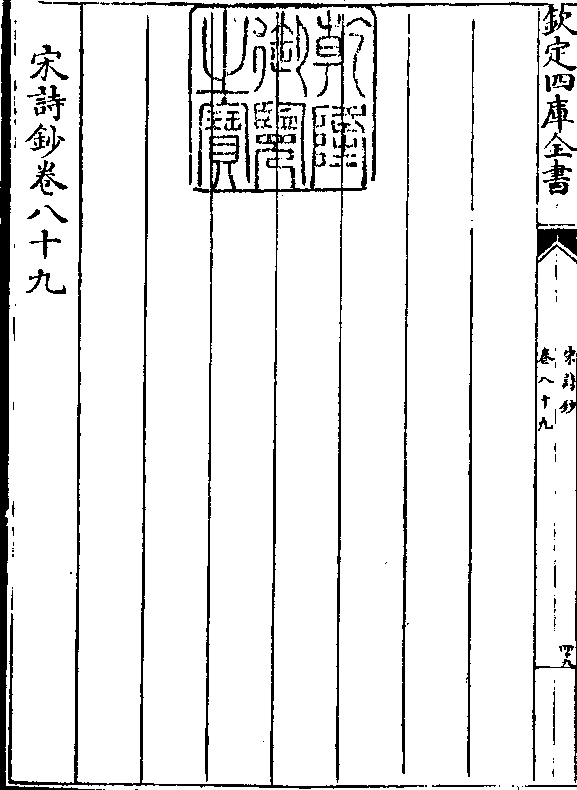 欽定四庫全書
宋詩鈔
卷八十九
四九
乾隆
御覽
之寶
宋詩鈔卷八十九